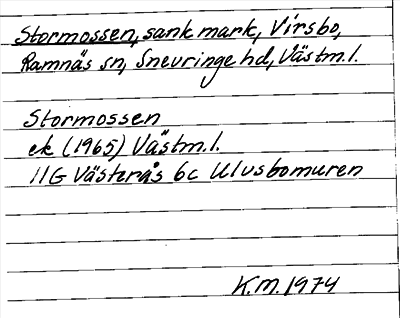 Stormossen, sank mark, Virsbo,
Ramnäs sn, Snevringe hd, Västm.l.
Stormossen
ek (1965) Västm.l.
11G Västerås 6c Ulvsbomuren
K.M. 1974